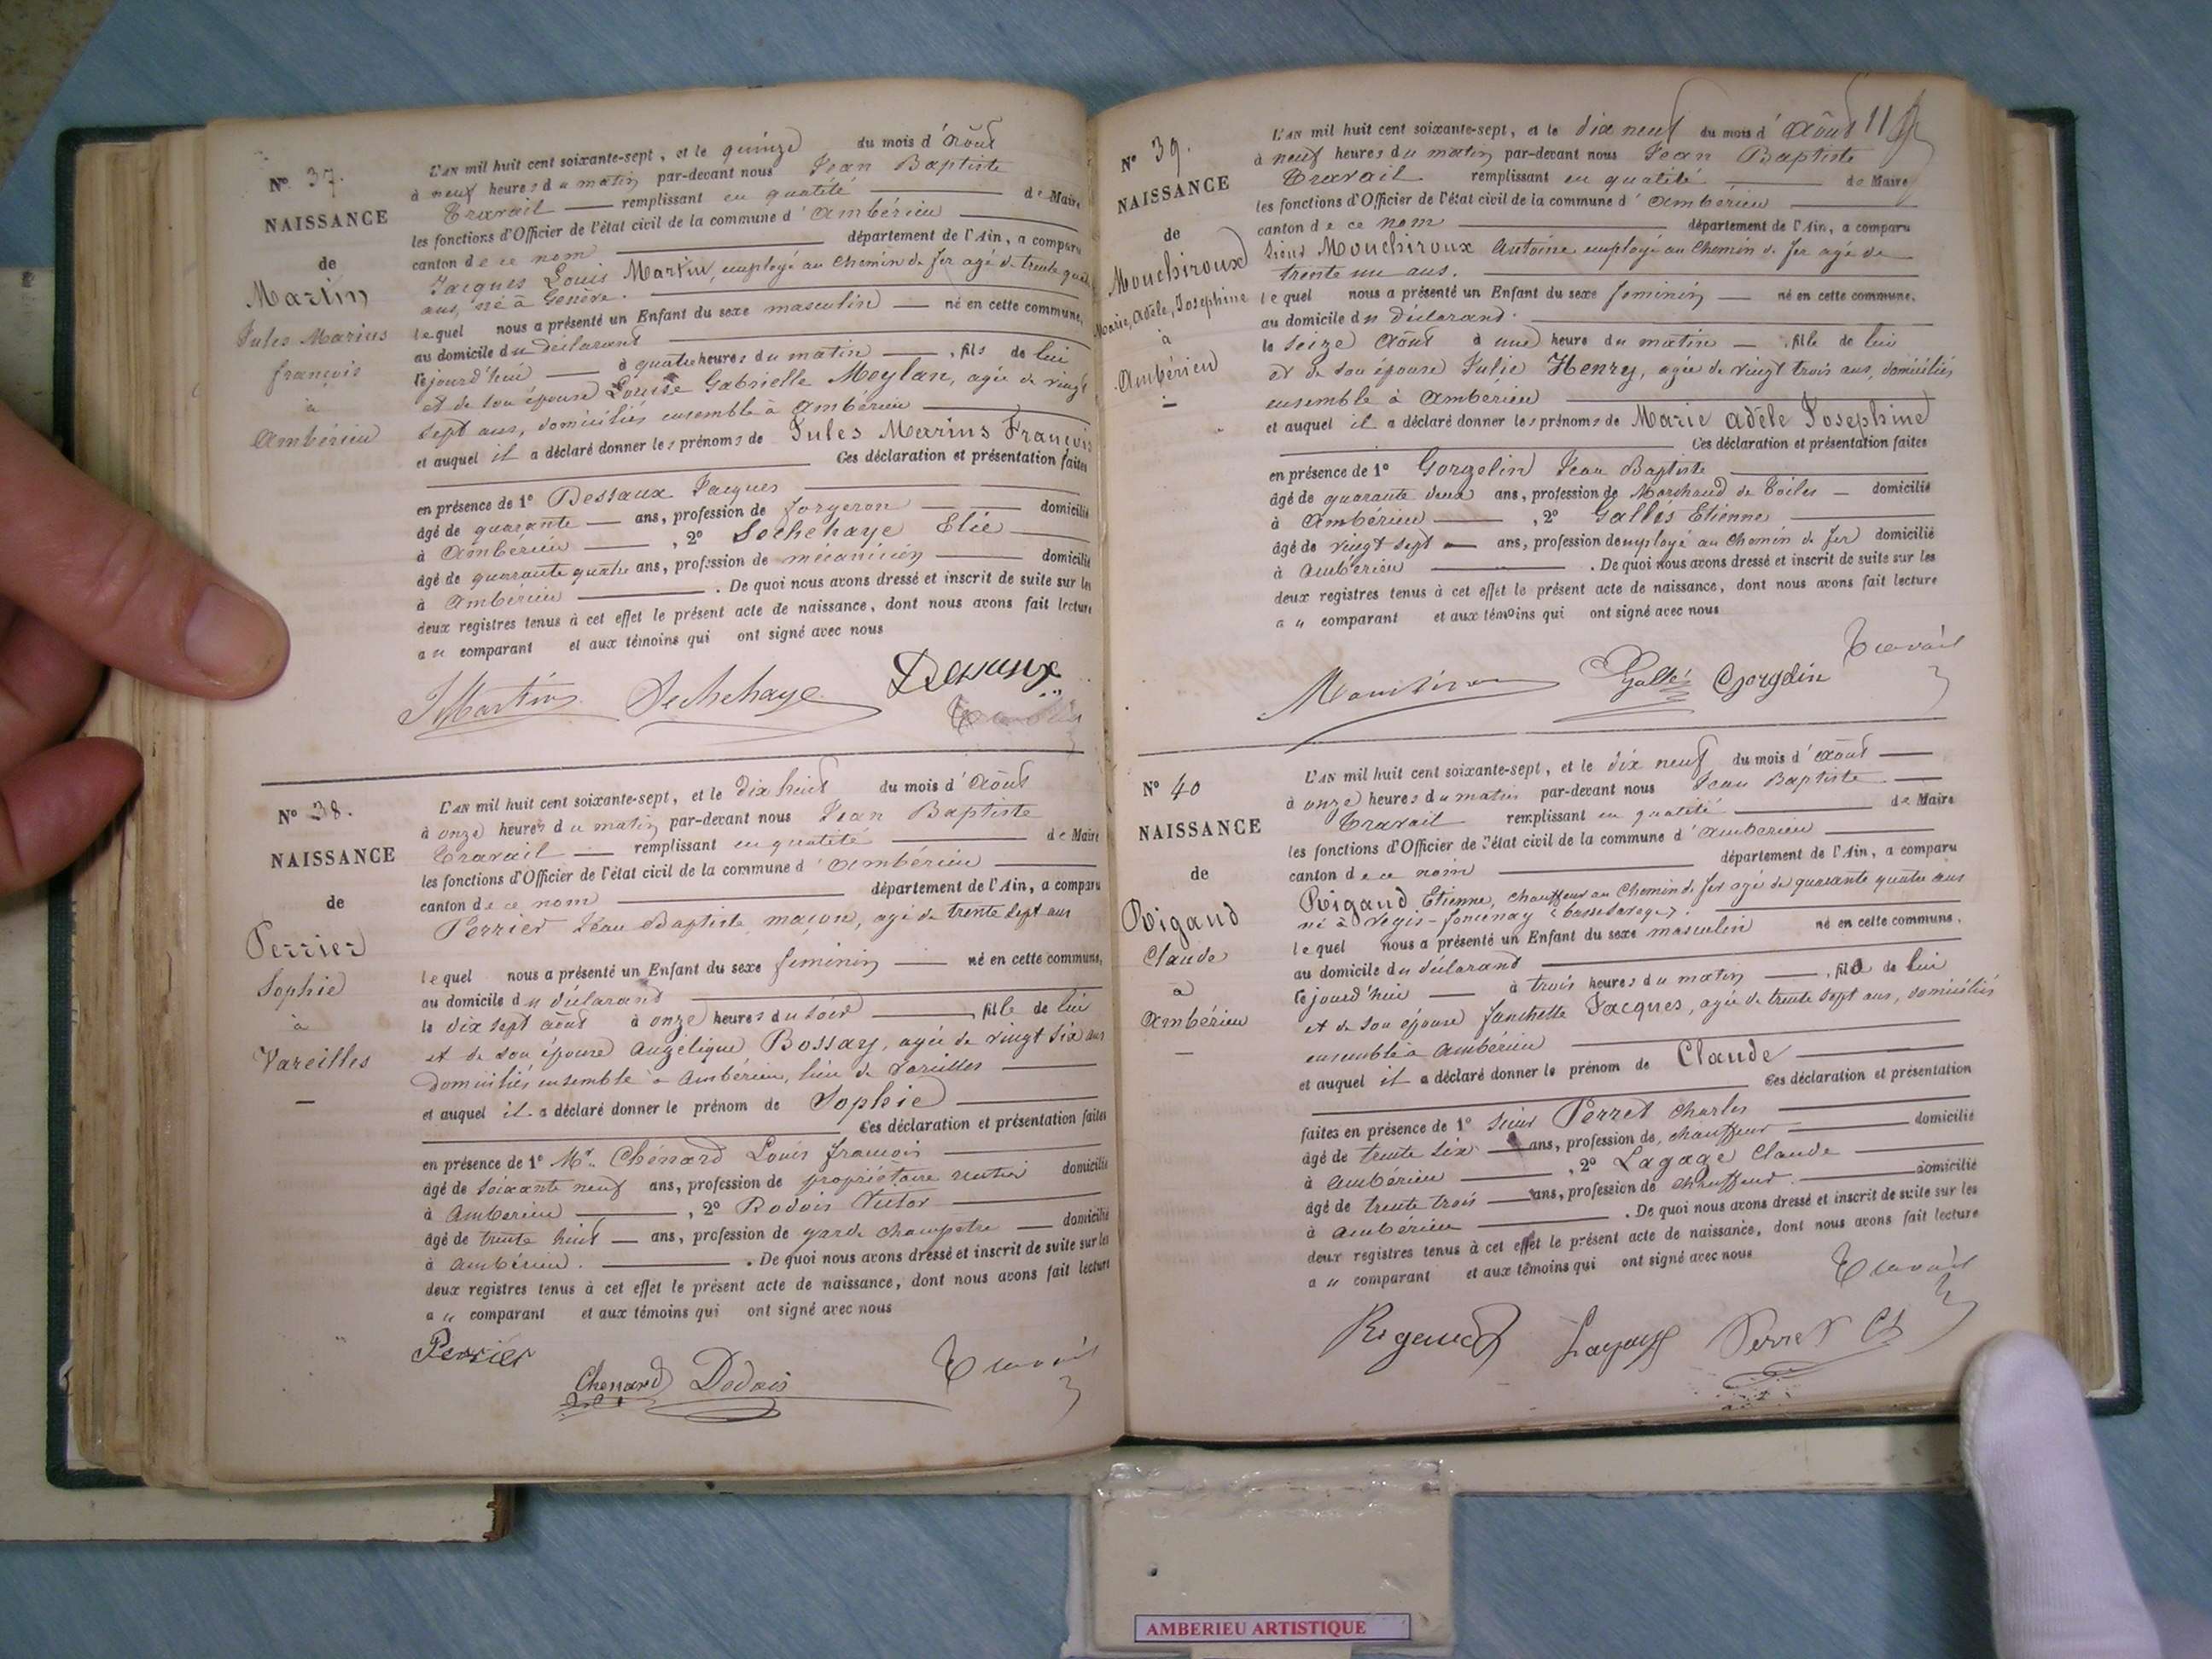 N° 37.
NAISSANCE
de
Martin
Jules Marius
françois
à
Ambérieu
L'AN mil huit cent soixante-sept, et le quinze du mois d'Août
à neuf heures du matin par-devant nous Jean Baptiste
Travail remplissant en qualité de Maire
les fonctions d'Officier de l'état civil de la commune d'Ambérieu
canton de ce nom département de l'Ain, a comparu
Jacques Louis Martin, employé au Chemin de fer agé de trente
ans, né à Genève.
lequel nous a présenté un Enfant du sexe masculin né en cette commune,
au domicile du déclarant
cejourd'hui à quatre heures du matin, fils de lui
et de son épouse Louise Gabrielle Meylan, agée de vingt
sept ans, domiciliés ensemble à Ambérieu
et auquel il a déclaré donner les prénoms de Jules Marius François
Ces déclaration et présentation faites
en présence de 1° Dessaux Jacques
âgé de quarante ans, profession de forgeron domicilié
à Ambérieu, 2° Sechehaye Elie
âgé de quarante quatre ans, profession de mécanicien domicilié
à Ambérieu. De quoi nous avons dressé et inscrit de suite sur les
deux registres tenus à cet effet le présent acte de naissance, dont nous avons fait lecture
au comparant et aux témoins qui ont signé avec nous
JMartin Sechehaye Dessaux
Travail
N° 38.
NAISSANCE
de
Perrier
Sophie
à
Vareilles
L'AN mil huit cent soixante-sept, et le dix huit du mois d'Août
à onze heures du matin par-devant nous Jean Baptiste
Travail remplissant en qualité de Maire
les fonctions d'Officier de l'état civil de la commune d'Ambérieu
canton de ce nom département de l'Ain, a comparu
Perrier Jean Baptiste maçon, agé de trente sept ans
lequel nous a présenté un Enfant du sexe feminin né en cette commune,
au domicile du déclarant
le dix sept août à onze heures du soir, fille de lui
et de son épouse Angélique Bossay, agée de vingt six ans
domiciliés ensemble à Ambérieu, lieu de Vareilles
et auquel il a déclaré donner le prénom de Sophie
Ces déclaration et présentation faites
en présence de 1° Mr. Chénard Louis françois
âgé de soixante neuf ans, profession de propriétaire rentier domicilié
à Ambérieu, 2° Dodois Victor
âgé de trente huit ans, profession de garde champetre domicilié
à Ambérieu. De quoi nous avons dressé et inscrit de suite sur les
deux registres tenus à cet effet le présent acte de naissance, dont nous avons fait lecture
au comparant et aux témoins qui ont signé avec nous
Perrier
Chenard Dodois Travail
N° 39.
NAISSANCE
de
Mouchiroux
Marie, Adèle, Josephine
à
Ambérieu
L'AN mil huit cent soixante-sept, et le dix neuf du mois d'Août 11
à neuf heures du matin par-devant nous Jean Baptiste
Travail remplissant en qualité de Maire
les fonctions d'Officier de l'état civil de la commune d'Ambérieu
canton de ce nom département de l'Ain, a comparu
Sieur Mouchiroux Antoine employé au Chemin de fer agé de
trente un ans.
lequel nous a présenté un Enfant du sexe feminin né en cette commune,
au domicile du déclarant.
le seize Août à une heure du matin, fille de lui
et de son épouse Julie Henry, agée de vingt trois ans, domiciliés
ensemble à Ambérieu
et auquel il a déclaré donner les prénoms de Marie Adèle Josephine
Ces déclaration et présentation faites
en présence de 1° Gorgelin Jean Baptiste
âgé de quarante deux ans, profession de Marchand de Toiles domicilié
à Ambérieu, 2° Gallés Etienne
âgé de vingt sept ans, profession d'employé au Chemin de fer domicilié
à Ambérieu. De quoi nous avons dressé et inscrit de suite sur les
deux registres tenus à cet effet le présent acte de naissance, dont nous avons fait lecture
au comparant et aux témoins qui ont signé avec nous
Travail
Mouchiroux Gallés Gorgelin
N° 40
NAISSANCE
de
Rigaud
Claude
à
Ambérieu
L'AN mil huit cent soixante-sept, et le dix neuf du mois d'Août
à onze heures du matin par-devant nous Jean Baptiste
Travail remplissant en qualité de Maire
les fonctions d'Officier de l'état civil de la commune d'Ambérieu
canton de ce nom département de l'Ain, a comparu
Rigaud Etienne, chauffeur au Chemin de fer agé de quarante quatre ans
né à
lequel nous a présenté un Enfant du sexe masculin né en cette commune,
au domicile du déclarant
cejourd'hui à trois heures du matin, fils de lui
et de son épouse fanchette Jacques, agée de trente sept ans, domiciliés
ensemble à Ambérieu
et auquel il a déclaré donner le prénom de Claude
Ces déclaration et présentation
faites en présence de 1° Sieur Perret Charles
âgé de trente six ans, profession de chauffeur domicilié
à Ambérieu, 2° Lagage Claude
âgé de trente trois ans, profession de chauffeur. domicilié
à Ambérieu. De quoi nous avons dressé et inscrit de suite sur les
deux registres tenus à cet effet le présent acte de naissance, dont nous avons fait lecture
au comparant et aux témoins qui ont signé avec nous
Travail
Rigaud Lagage Perret Ch
AMBERIEU ARTISTIQUE